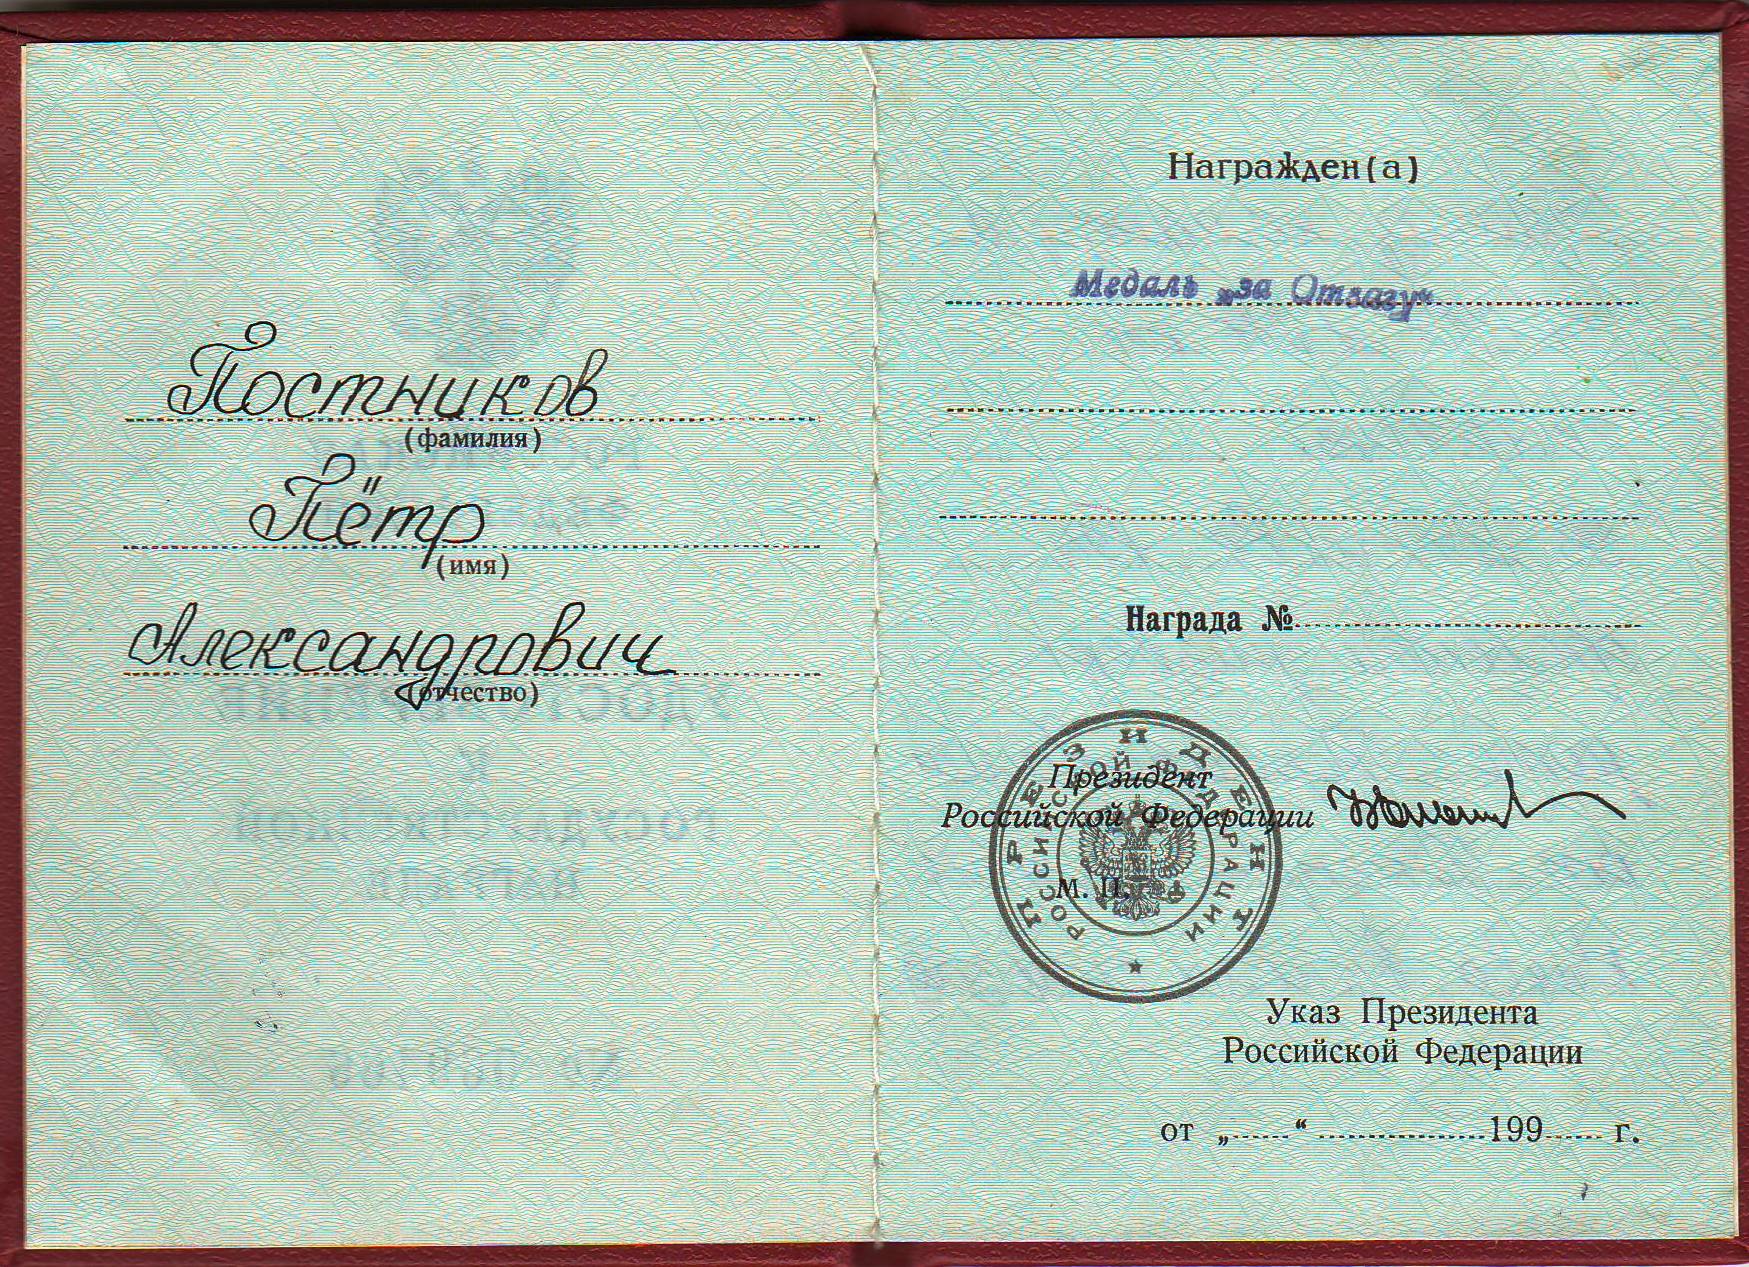 Постников
(фамилия)
Пётр
(имя)
Александрович
(отчество)
Награжден(а)
Медаль „за Отвагу“
Награда №
Президент
Российской Федерации
М. П.
ПРЕЗИДЕНТ
РОССИЙСКОЙ ФЕДЕРАЦИИ
Указ Президента
Российской Федерации
от „ “ 199 г.